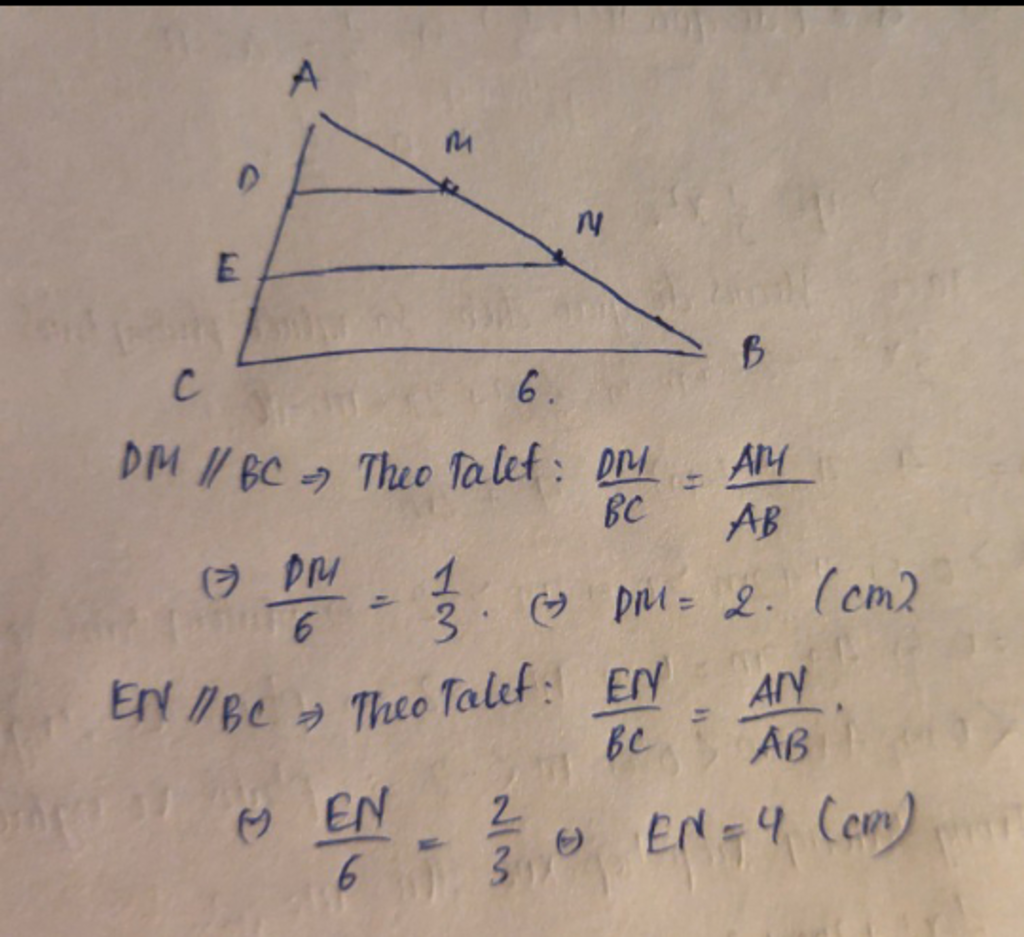 A
M
D
N
E
B
C
6.
DM // BC => Theo Talet: DM/BC = AM/AB
<=> DM/6 = 1/3. <=> DM = 2. (cm)
EN // BC => Theo Talet: EN/BC = AN/AB.
<=> EN/6 = 2/3 <=> EN = 4 (cm)